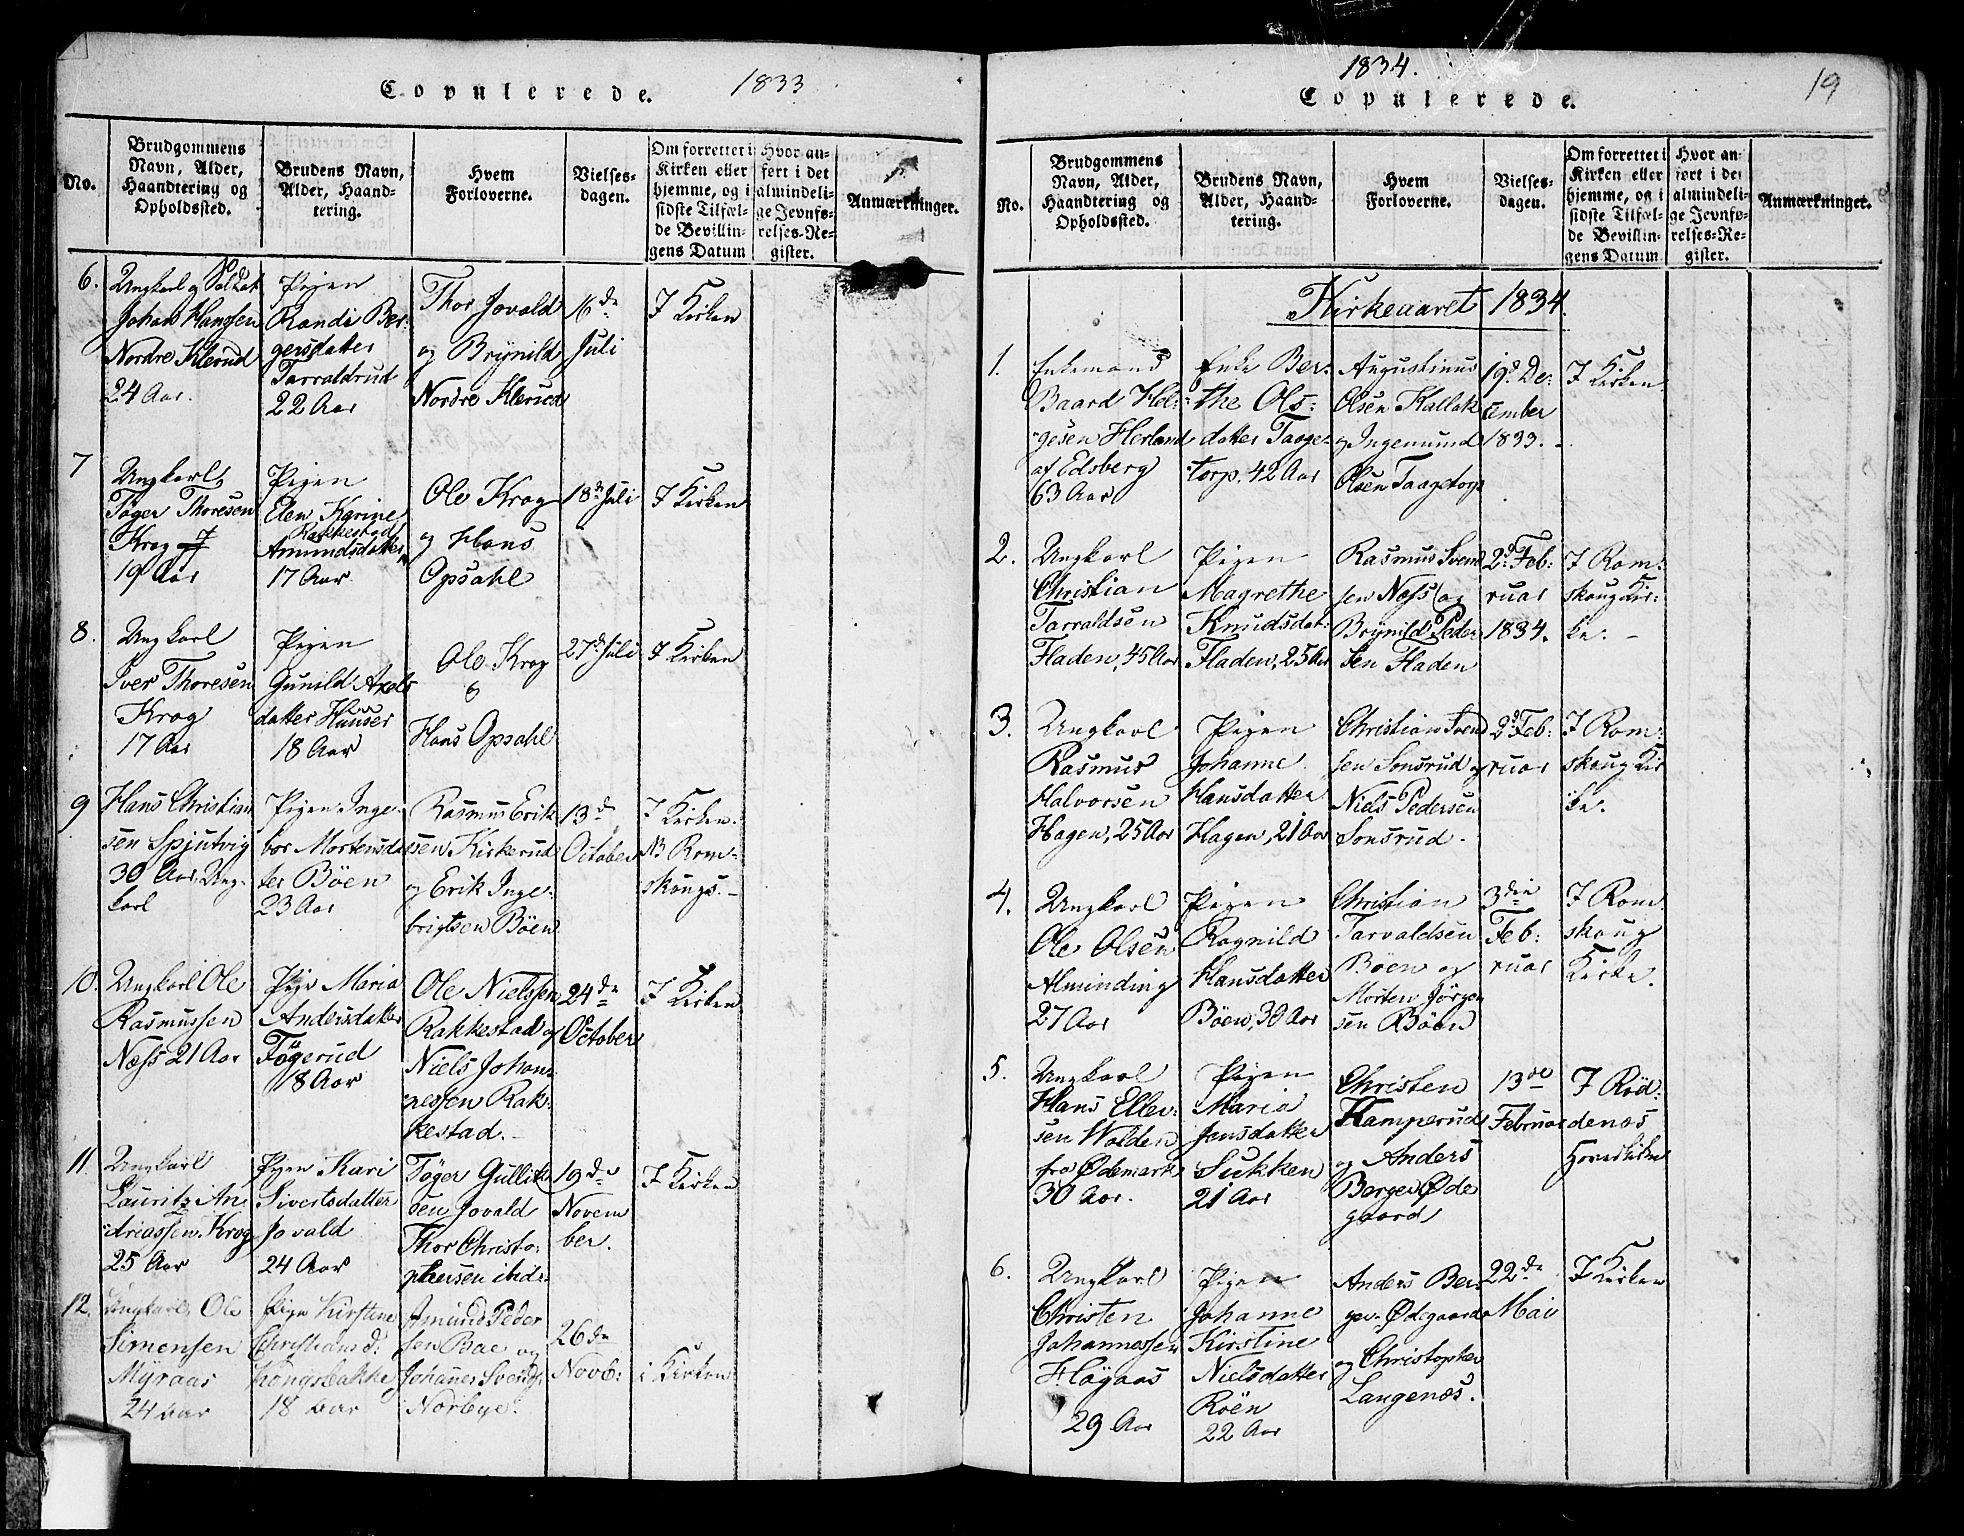 Copulerede.
1833
No.
Brudgommens
Navn, Alder,
Haandtering og
Opholdssted.
Brudens Navn,
Alder, Haand-
tering.
Hvem
Forloverne.
Vielses-
dagen.
Om forrettet i
Kirken eller
hjemme, og i
sidste Tilfæl-
de Bevillin-
gens Datum
Hvor an-
ført i det
almindeli-
ge Jevnfø-
relses-Re-
gister.
Anmærkninger.
6.
Ungkarl og Soldat
Johan Hanssen
Nordre Klerud
24 Aar.
Pigen
Randi Ber-
gersdatter
Tarraldrud
22 Aar
Thor Jovald
og Brynild
Nordre Klerud
16de
Juli
I Kirken
7
Ungkarl
Töger Thoresen
Krog
19 Aar
Pigen
Elen Karine
Rakkestad
Amundsdatter
17 Aar
Ole Krog
og Hans
Opsahl
18de Juli
I Kirken
8.
Ungkarl
Iver Thoresen
Krog
17 Aar
Pigen
Gunild Axels
datter
18 Aar
Ole Krog
&
Hans Opsahl
27de Juli
I Kirken
9
Hans Christian
sen Spjutvig
30 Aar, Ung-
karl
Pigen Inge-
bor Mortensdat
ter Böen
23 Aar
Rasmus Erik
sen Kirkerud
og Erik Inge-
brigtsen Böen
13de
October
I Kirken.
NB Rom-
skougs.
10.
Ungkarl Ole
Rasmussen
Næss 21 Aar
Pige Maria
Andersdatter
Tögerud
18 Aar
Ole Nielssen
Rakkestad og
Niels Johan-
nessen Rak-
kestad.
24de
October
I Kirken
11.
Ungkarl
Lauritz An-
driassen Krog
25 Aar
Pigen Kari
Sivertsdatter
Jovald
24 Aar
Töger Gullik
sen Jovald
Thor Christo-
phersen ibid.
19de
Novem
ber.
I Kirken
12.
Ungkarl Ole
Simensen
Myraas
24 aar
Pige Kirstine
Christiansd:
Kongsbakke
18 aar
Amund Peder
sen Bae og
Johannes Svends.
Nordbye.
26de
Novb:
i Kirken
1834.
Copulerede.
19
No.
Brudgommens
Navn, Alder,
Haandtering og
Opholdssted.
Brudens Navn,
Alder, Haand-
tering.
Hvem
Forloverne.
Vielses-
dagen.
Om forrettet i
Kirken eller
hjemme, og i
sidste Tilfæl-
de Bevillin-
gens Datum.
Hvor an-
ført i det
almindeli-
ge Jevnfø-
relses-Re-
gister.
Anmærkninger.
Kirkeaaret 1834.
1.
Enkemand
Baard Hel-
gesen Herland
af Edsberg
63 Aar
Enke Ber-
the Ols-
datter Taage-
torp. 42 Aar
Augustinus
Olsen Kallak
og Ingemund
Olsen Taagetorp
19de De-
cember
1833.
I Kirken
2.
Ungkarl
Christian
Tarraldsen
Fladen, 45 Aar
Pigen
Magrethe
Knudsdat:
Fladen, 25 Aar
Rasmus Svend
sen Næss og
Brynild Peder
sen Fladen
2de Feb:
ruar
1834.
I Rom:
skoug Kir:
ke.
3.
Ungkarl
Rasmus
Halvorsen
Hagen, 25 Aar
Pigen
Johanne
Hansdatter
Hagen, 21 Aar
Christian Svend
sen Sonsrud og
Niels Pedersen
Sonsrud.
2de Feb:
ruar
I Rom:
skoug Kir
ke.
4.
Ungkarl
Ole Olsen
Alminding
27 Aar
Pigen
Ragnild
Hansdatter
Böen, 30 Aar
Christian
Tarvaldsen
Böen og
Morten Jörgen
sen Böen
3die
Feb:
ruar
I Rom
skoug
Kirke.
5.
Ungkarl
Hans Eller-
sen Wolden
fra Ødemark
30 Aar.
Pigen
Maria
Jensdatter
Sukken
21 Aar
Christen
Kamperud
og Anders
Berger Øde
gaard
13de
Februar
I Röd:
denæs
Hovedkirke
6.
Ungkarl
Christen
Johannessen
Flögaas
29 Aar
Pigen
Johanne
Kirstine
Nielsdatter
Röen
22 Aar
Anders Ber-
ger Ødegaard
og Christopher
Langenæs.
22de
Mai
I Kirken